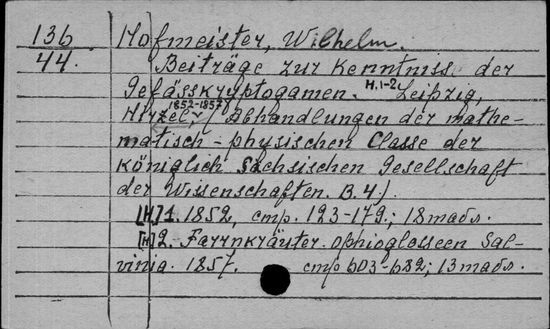 136 Hofmeister, Wilhelm.
44. Beiträge zur Kenntniss der
Gefässkryptogamen. H. 1-2 Leipzig,
Hirzel, 1852-1857 (Abhandlungen der mathe-
matisch-physischen Classe der
königlich Sächsischen Gesellschaft
der Wissenschaften. B. 4).
[H] 1. 1852, cmp. 123-179.; 18 mabs.
[H] 2. Farrnkräuter. Ophioglosseen Sal-
vinia. 1857. cmp 603-682; 13 mabs.